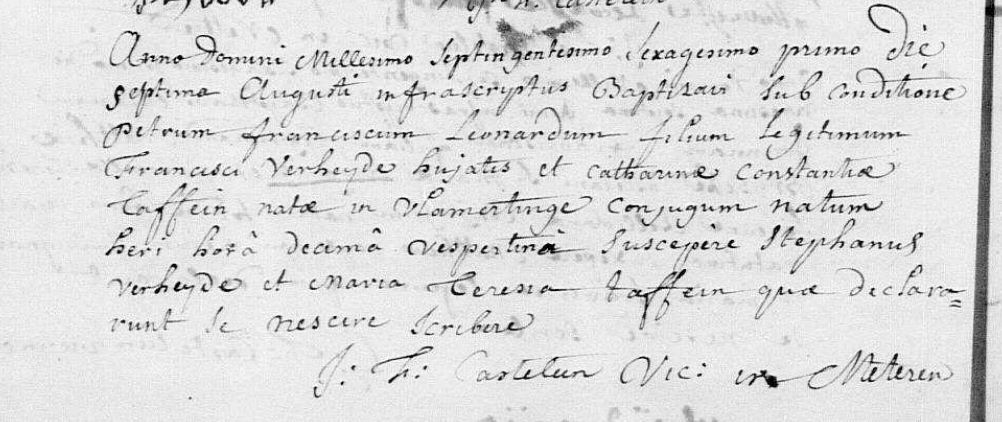 Anno Domini Millesimo Septingentesimo Sexagesimo primo die
septima Augusti infrascriptus Baptizavi sub conditione
petrum franciscum Leonardum filium legitimum
Francisci Verheyde hujatis et catharinæ constantiæ
Taffein natæ in Vlamertinge conjugum natum
heri horâ decimâ vespertinâ suscepère Stephanus
verheyde et Maria Teresia taffein quæ declara=
runt se nescire scribere
J: F: Castelein Vic: in Meteren